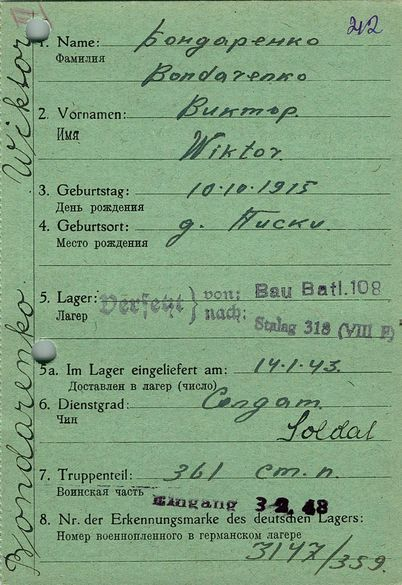 212
1. Name: Бондаренко
Фамилия
Bondarenko
2. Vornamen: Виктор.
Имя
Wiktor.
3. Geburtstag: 10.10.1915
День рождения
4. Geburtsort: д. Писки.
Место рождения
5. Lager: Versetzt } von: Bau Batl.108
Лагерь nach: Stalag 318 (VIII F)
5a. Im Lager eingeliefert am: 14.1.43.
Доставлен в лагер (число)
6. Dienstgrad: Солдат.
Чин
Soldat
7. Truppenteil: 361 ст. п.
Воинская часть
Eingang 3. 2. 43
8. Nr. der Erkennungsmarke des deutschen Lagers:
Номер военнопленного в германском лагере
3147/359.
Bondarenko. Wiktor